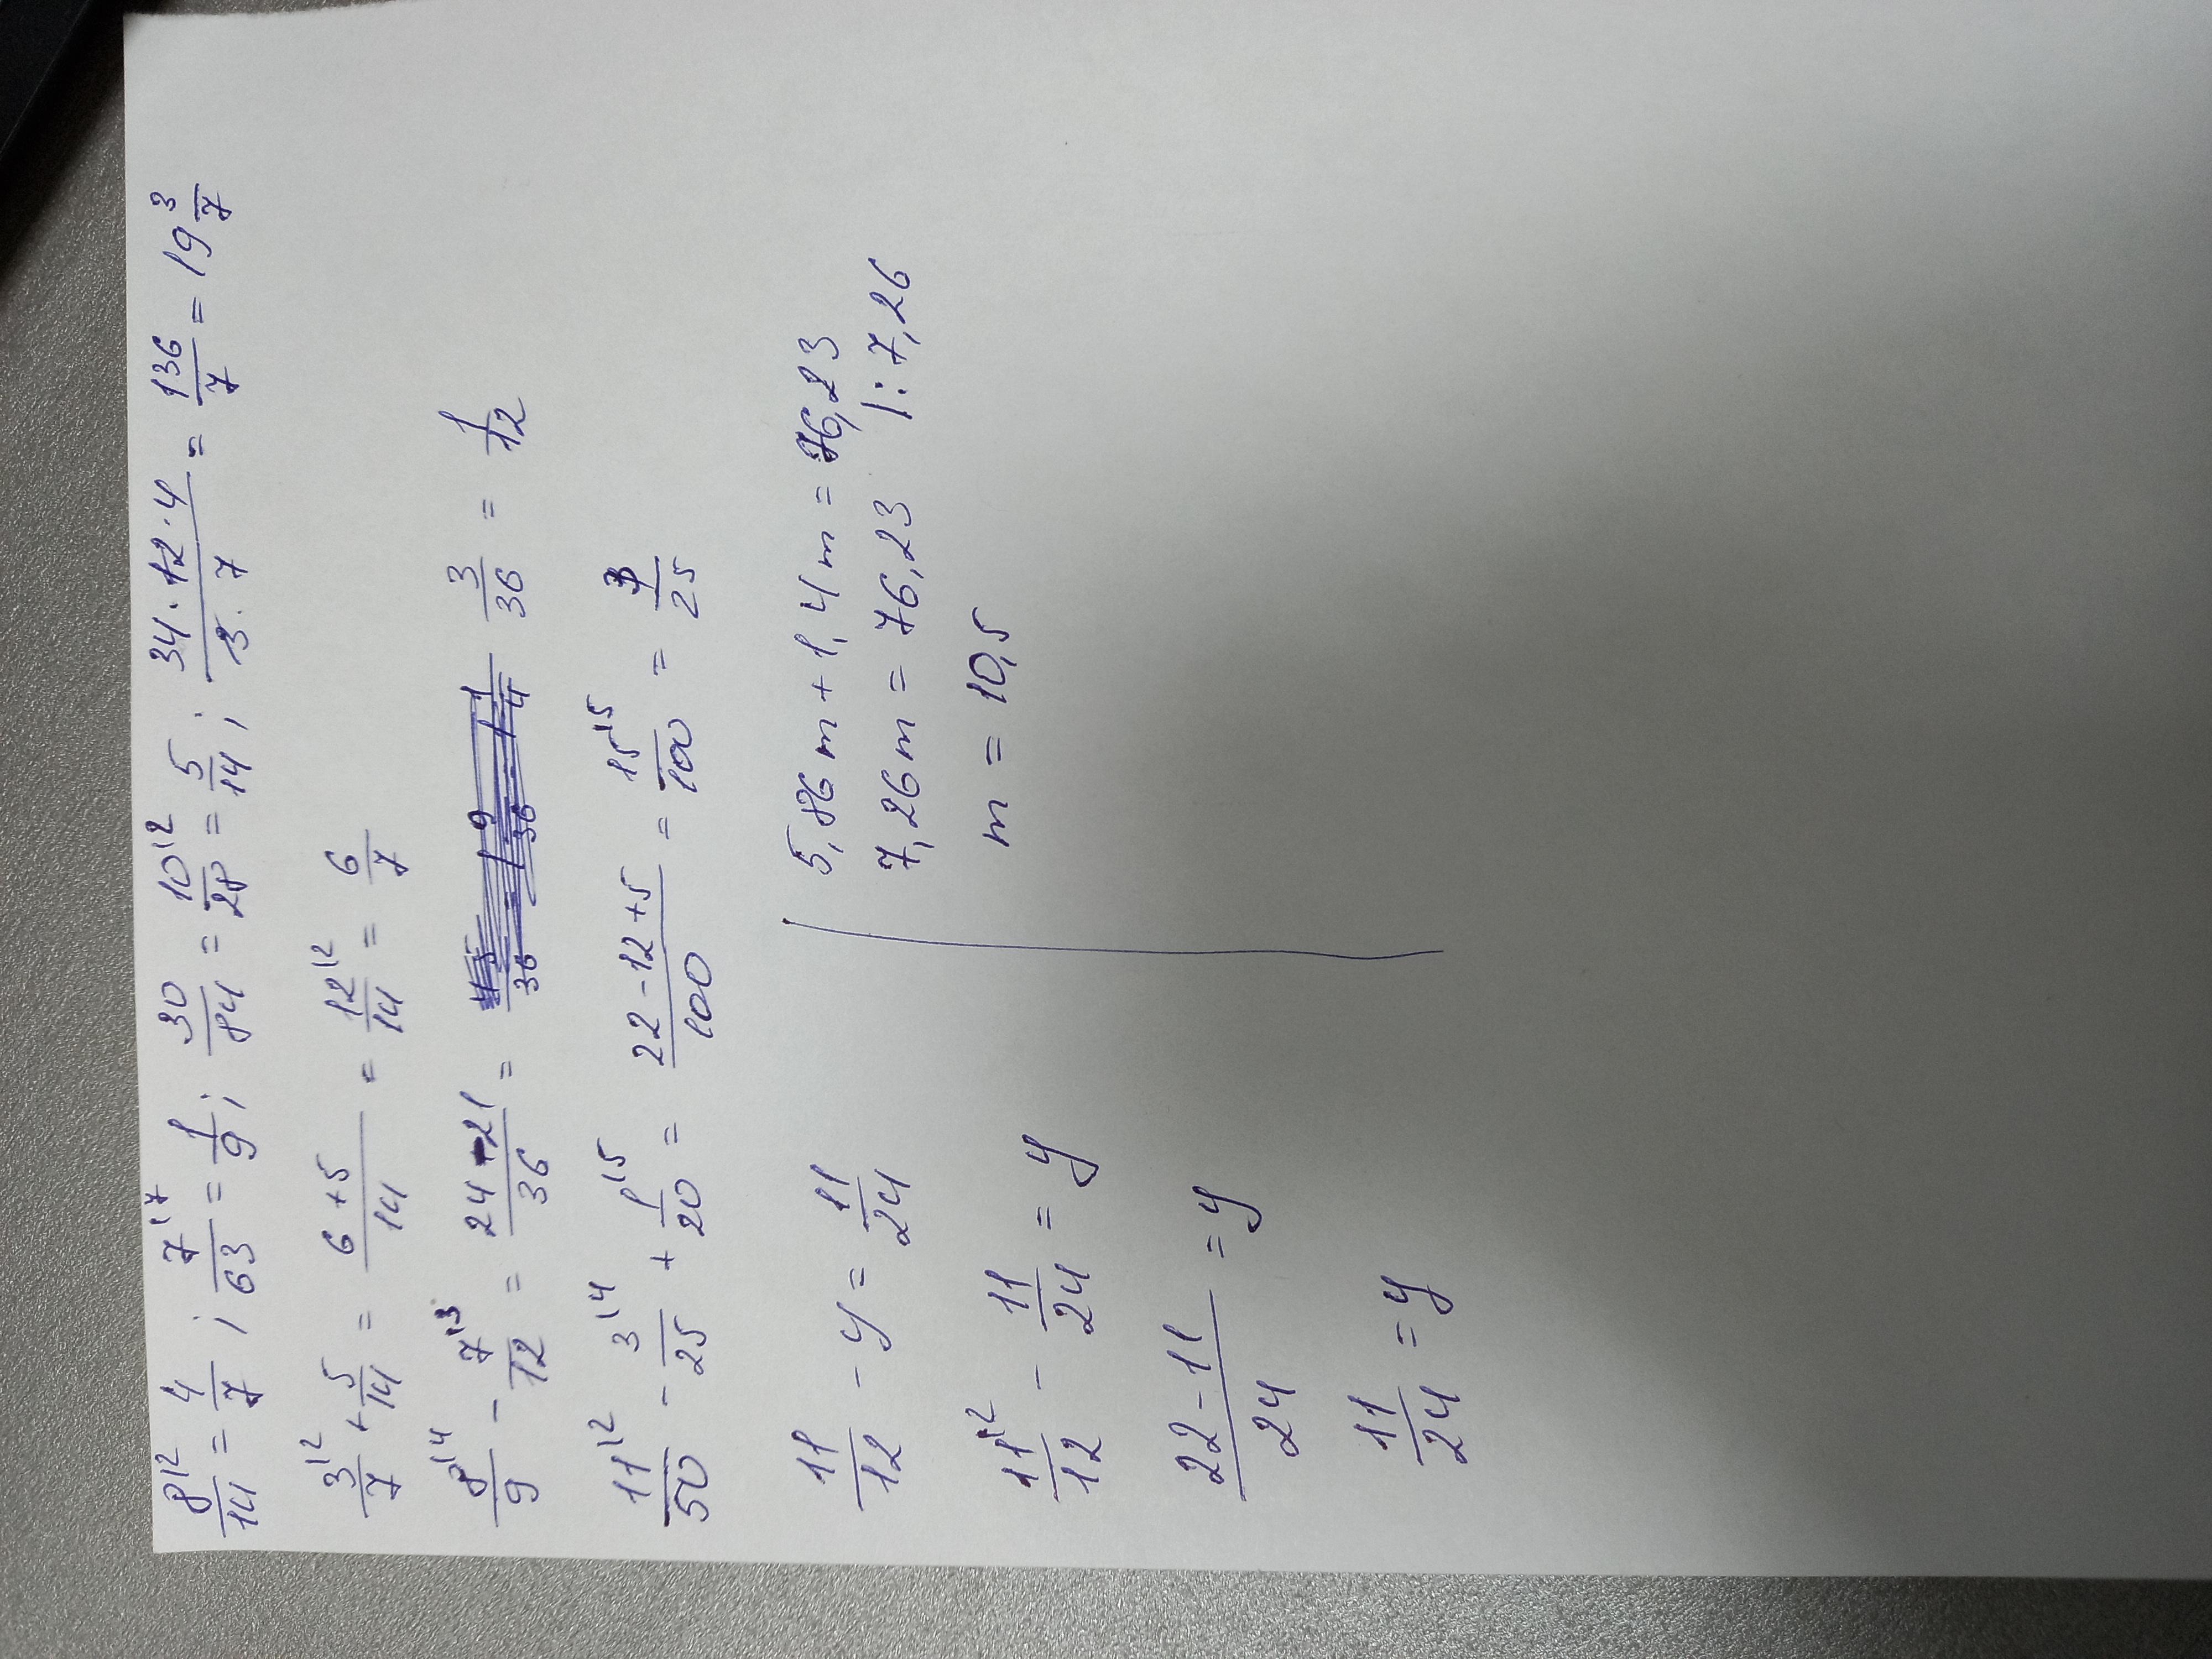 8|2/14 = 4/7 ; 7|7/63 = 1/9 ; 30/84 = 10|2/28 = 5/14 ; 34·12·4/3·7 = 136/7 = 19 3/7
3|2/7 + 5/14 = 6+5/14 = 12|2/14 = 6/7
8|4/9 - 7|3/12 = 24-21/36 = 3/36 = 1/12
11|2/50 - 3|4/25 + 1|5/20 = 22-12+5/100 = 15|5/100 = 3/25
11/12 - y = 11/24
11|2/12 - 11/24 = y
22-11/24 = y
11/24 = y
5,86m + 1,4m = 76,23
7,26m = 76,23 |:7,26
m = 10,5